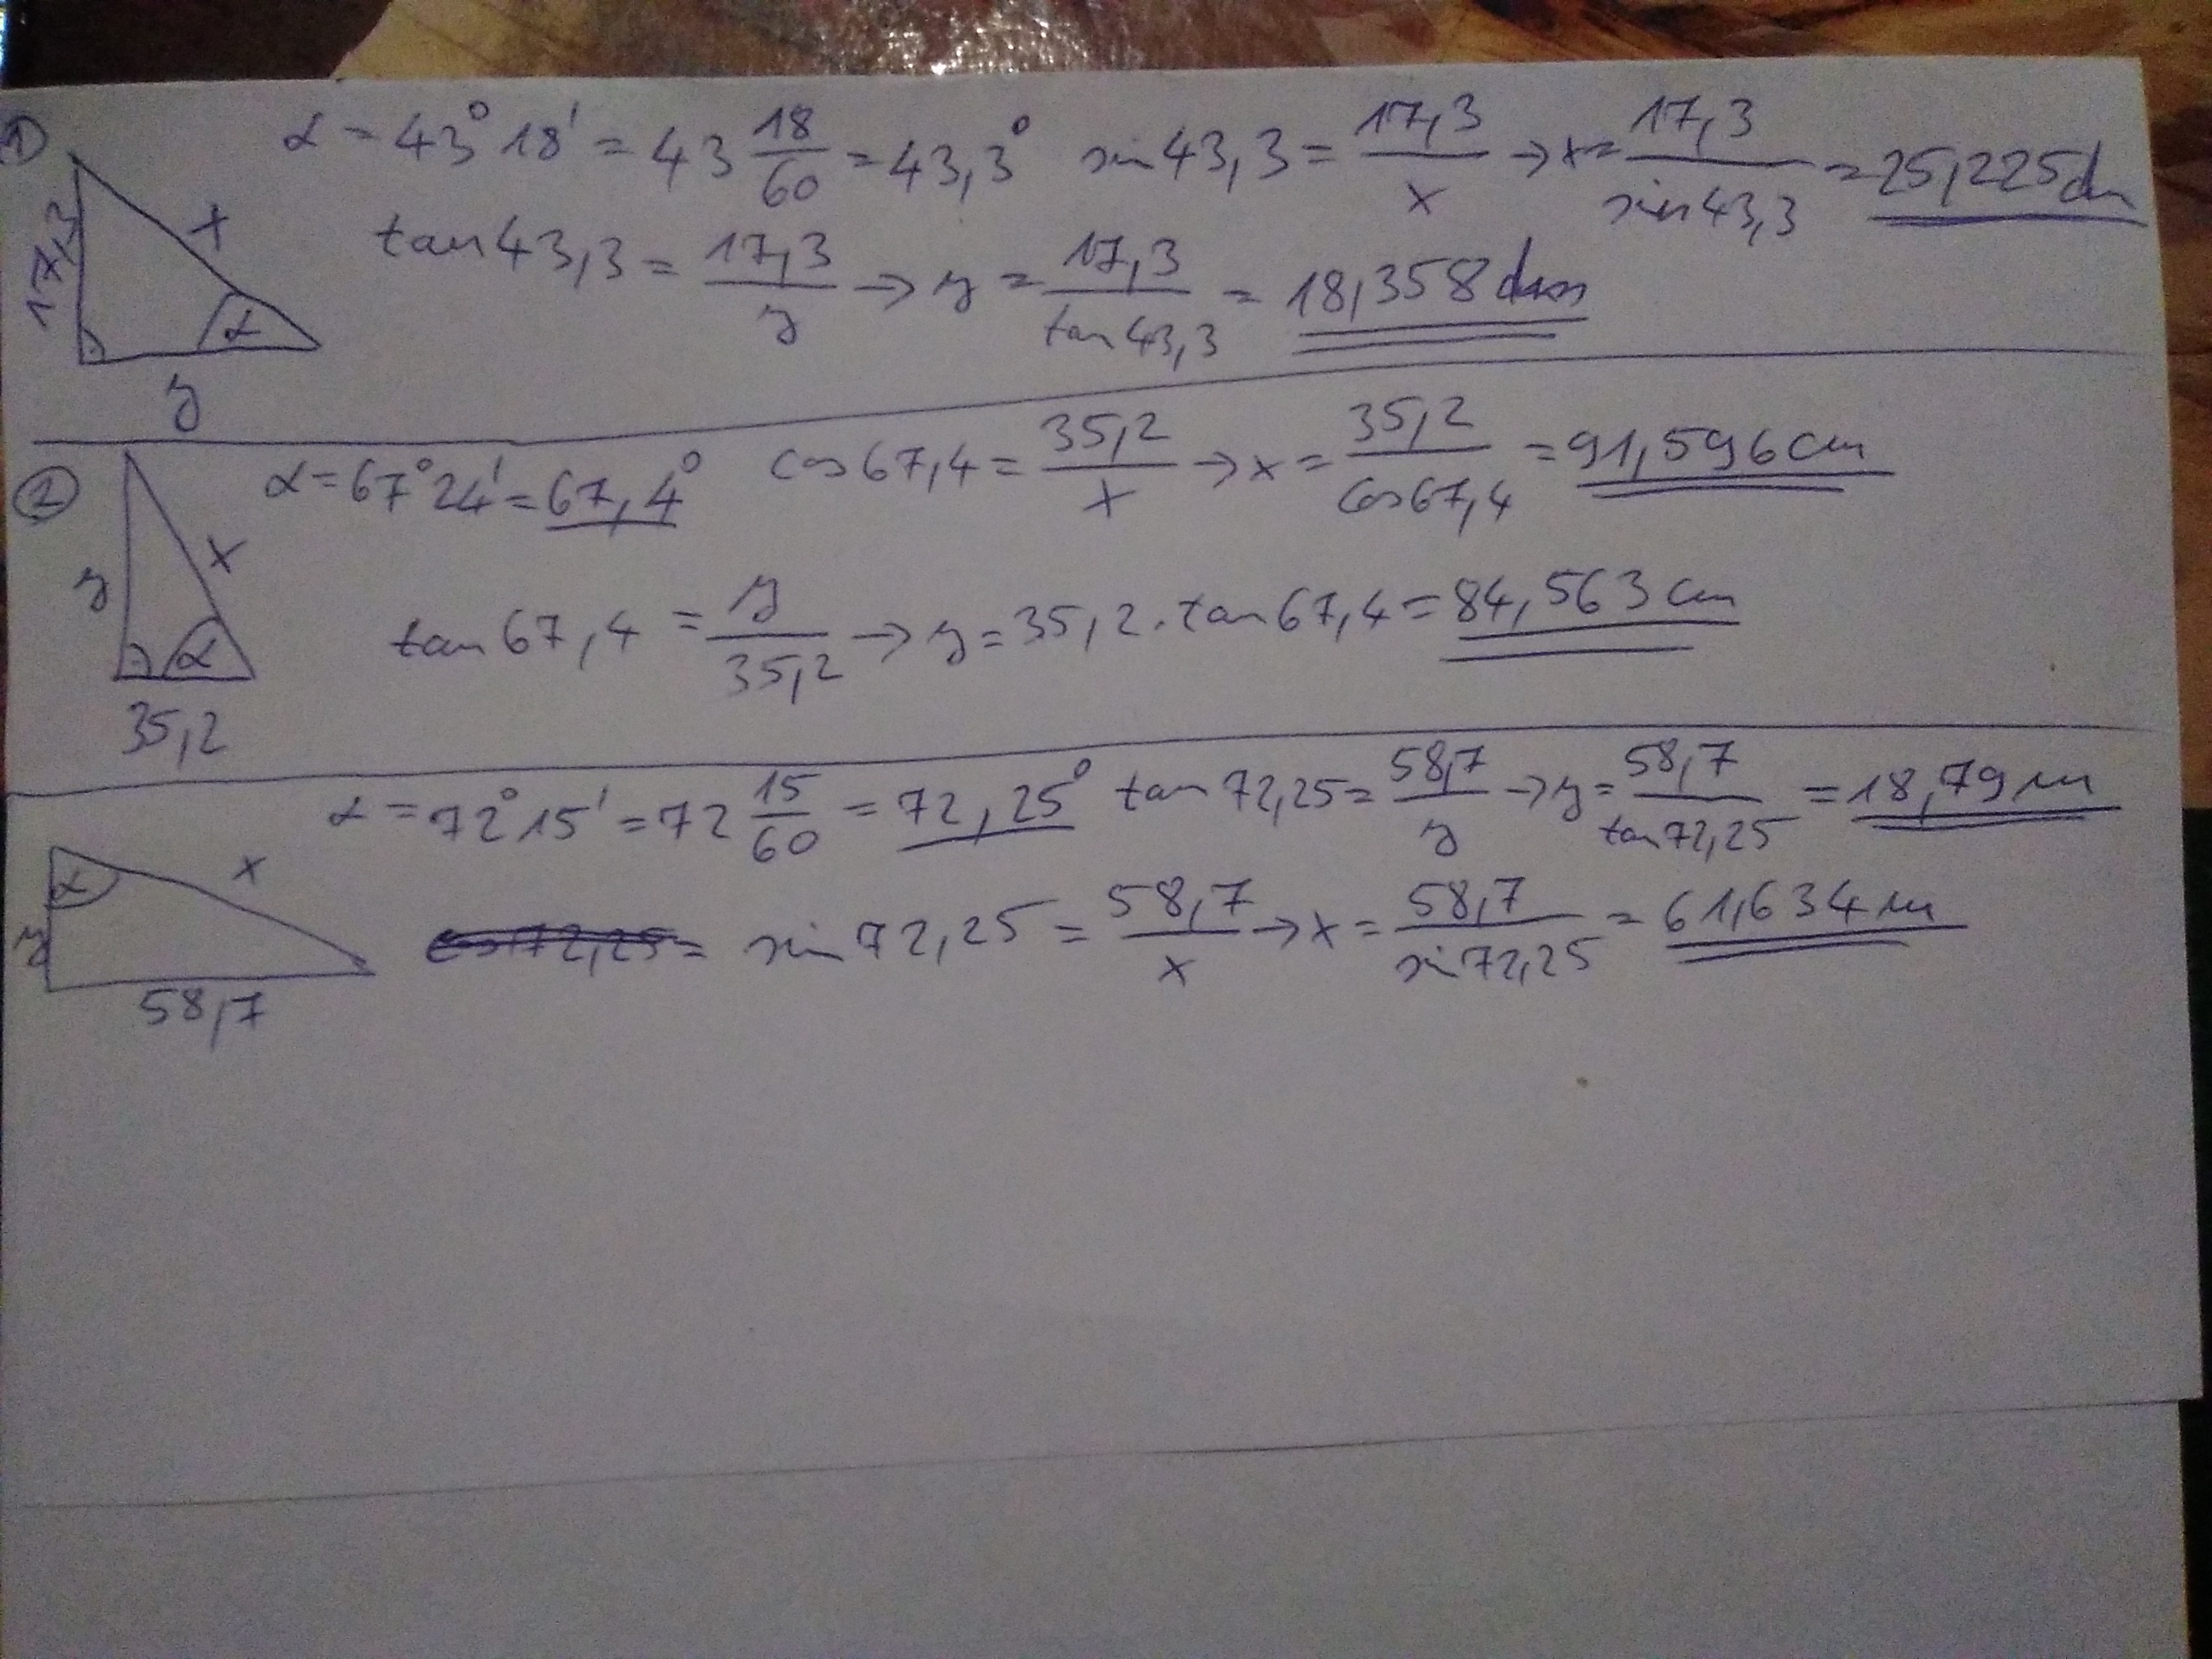 1) α = 43° 18' = 43 18/60 = 43,3° sin 43,3 = 17,3/x → x = 17,3/sin 43,3 = 25,225 dm
17,3 x
tan 43,3 = 17,3/y → y = 17,3/tan 43,3 = 18,358 dm
α
y
2 α = 67° 24' = 67,4° cos 67,4 = 35,2/x → x = 35,2/cos 67,4 = 91,596 cm
y x
tan 67,4 = y/35,2 → y = 35,2 . tan 67,4 = 84,563 cm
α
35,2
α = 72° 15' = 72 15/60 = 72,25° tan 72,25 = 58,7/y → y = 58,7/tan 72,25 = 18,79 m
α x
y cos 72,25 = sin 72,25 = 58,7/x → x = 58,7/sin 72,25 = 61,634 m
58,7